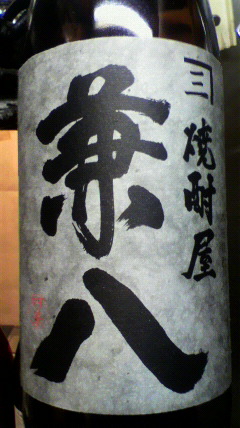 三
焼酎屋
兼八